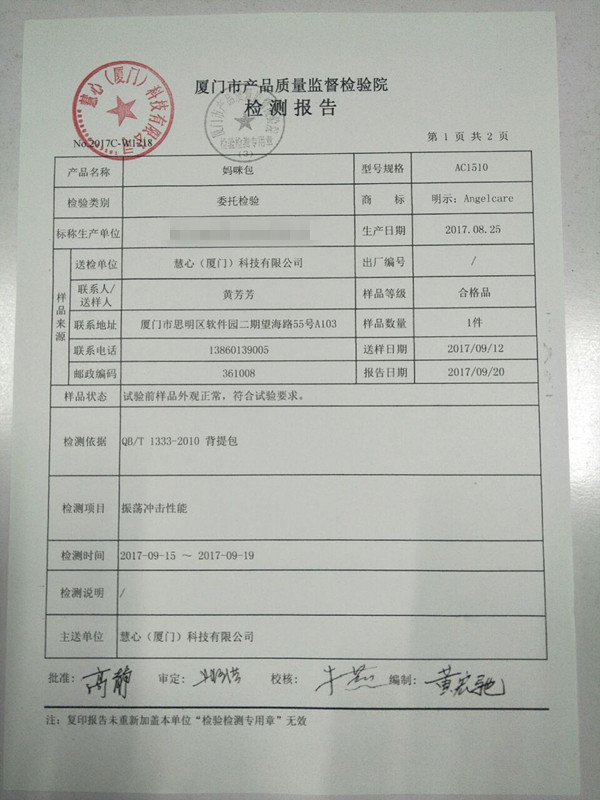 厦门市产品质量监督检验院
检测报告
慧心（厦门）科技有限公司
检验检测专用章
No.2017C-W1218
第 1 页 共 2 页
产品名称 妈咪包 型号规格 AC1510
检验类别 委托检验 商 标 明示：Angelcare
标称生产单位 生产日期 2017.08.25
样品来源
送检单位 慧心（厦门）科技有限公司 出厂编号 /
联系人/送样人 黄芳芳 样品等级 合格品
联系地址 厦门市思明区软件园二期望海路55号A103 样品数量 1件
联系电话 13860139005 送样日期 2017/09/12
邮政编码 361008 报告日期 2017/09/20
样品状态 试验前样品外观正常，符合试验要求。
检测依据 QB/T 1333-2010 背提包
检测项目 振荡冲击性能
检测时间 2017-09-15 ～ 2017-09-19
检测说明 /
主送单位 慧心（厦门）科技有限公司
批准： 高静 审定： 校核： 牛燕 编制： 黄宏驰
注：复印报告未重新加盖本单位“检验检测专用章”无效